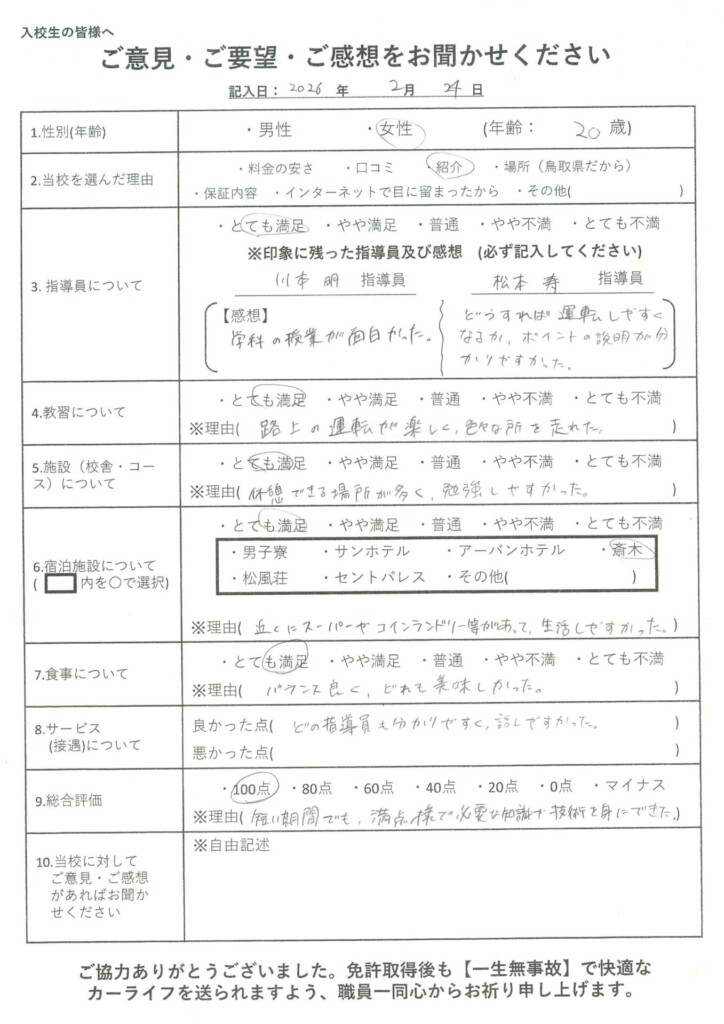 入校生の皆様へ
ご意見・ご要望・ご感想をお聞かせください
記入日：2026 年 2月 24日
1.性別(年齢) ・男性 ・女性 (年齢： 20 歳)
2.当校を選んだ理由 ・料金の安さ ・口コミ ・紹介 ・場所（鳥取県だから）
・保証内容 ・インターネットで目に留まったから ・その他( )
3. 指導員について ・とても満足 ・やや満足 ・普通 ・やや不満 ・とても不満
※印象に残った指導員及び感想 (必ず記入してください)
川本 明 指導員 松本 寿 指導員
【感想】
学科の授業が面白かった。
どうすれば運転しやすく
なるか、ポイントの説明が分
かりやすかった。
4.教習について ・とても満足 ・やや満足 ・普通 ・やや不満 ・とても不満
※理由( 路上の運転が楽しく、色々な所を走れた。 )
5.施設（校舎・コース）について ・とても満足 ・やや満足 ・普通 ・やや不満 ・とても不満
※理由( 休憩できる場所が多く、勉強しやすかった。 )
6.宿泊施設について
( 内を○で選択)
・とても満足 ・やや満足 ・普通 ・やや不満 ・とても不満
・男子寮 ・サンホテル ・アーバンホテル ・斎木
・松風荘 ・セントパレス ・その他( )
※理由( 近くにスーパーやコインランドリー等があって、生活しやすかった。)
7.食事について ・とても満足 ・やや満足 ・普通 ・やや不満 ・とても不満
※理由( バランス良く、どれも美味しかった。 )
8.サービス
(接遇)について
良かった点( どの指導員も分かりやすく、話しやすかった。 )
悪かった点( )
9.総合評価 ・100点 ・80点 ・60点 ・40点 ・20点 ・0点 ・マイナス
※理由( 短い期間でも、満点様で必要な知識や技術を身にできた。)
10.当校に対して
ご意見・ご感想
があればお聞か
せください
※自由記述
ご協力ありがとうございました。免許取得後も【一生無事故】で快適な
カーライフを送られますよう、職員一同心からお祈り申し上げます。